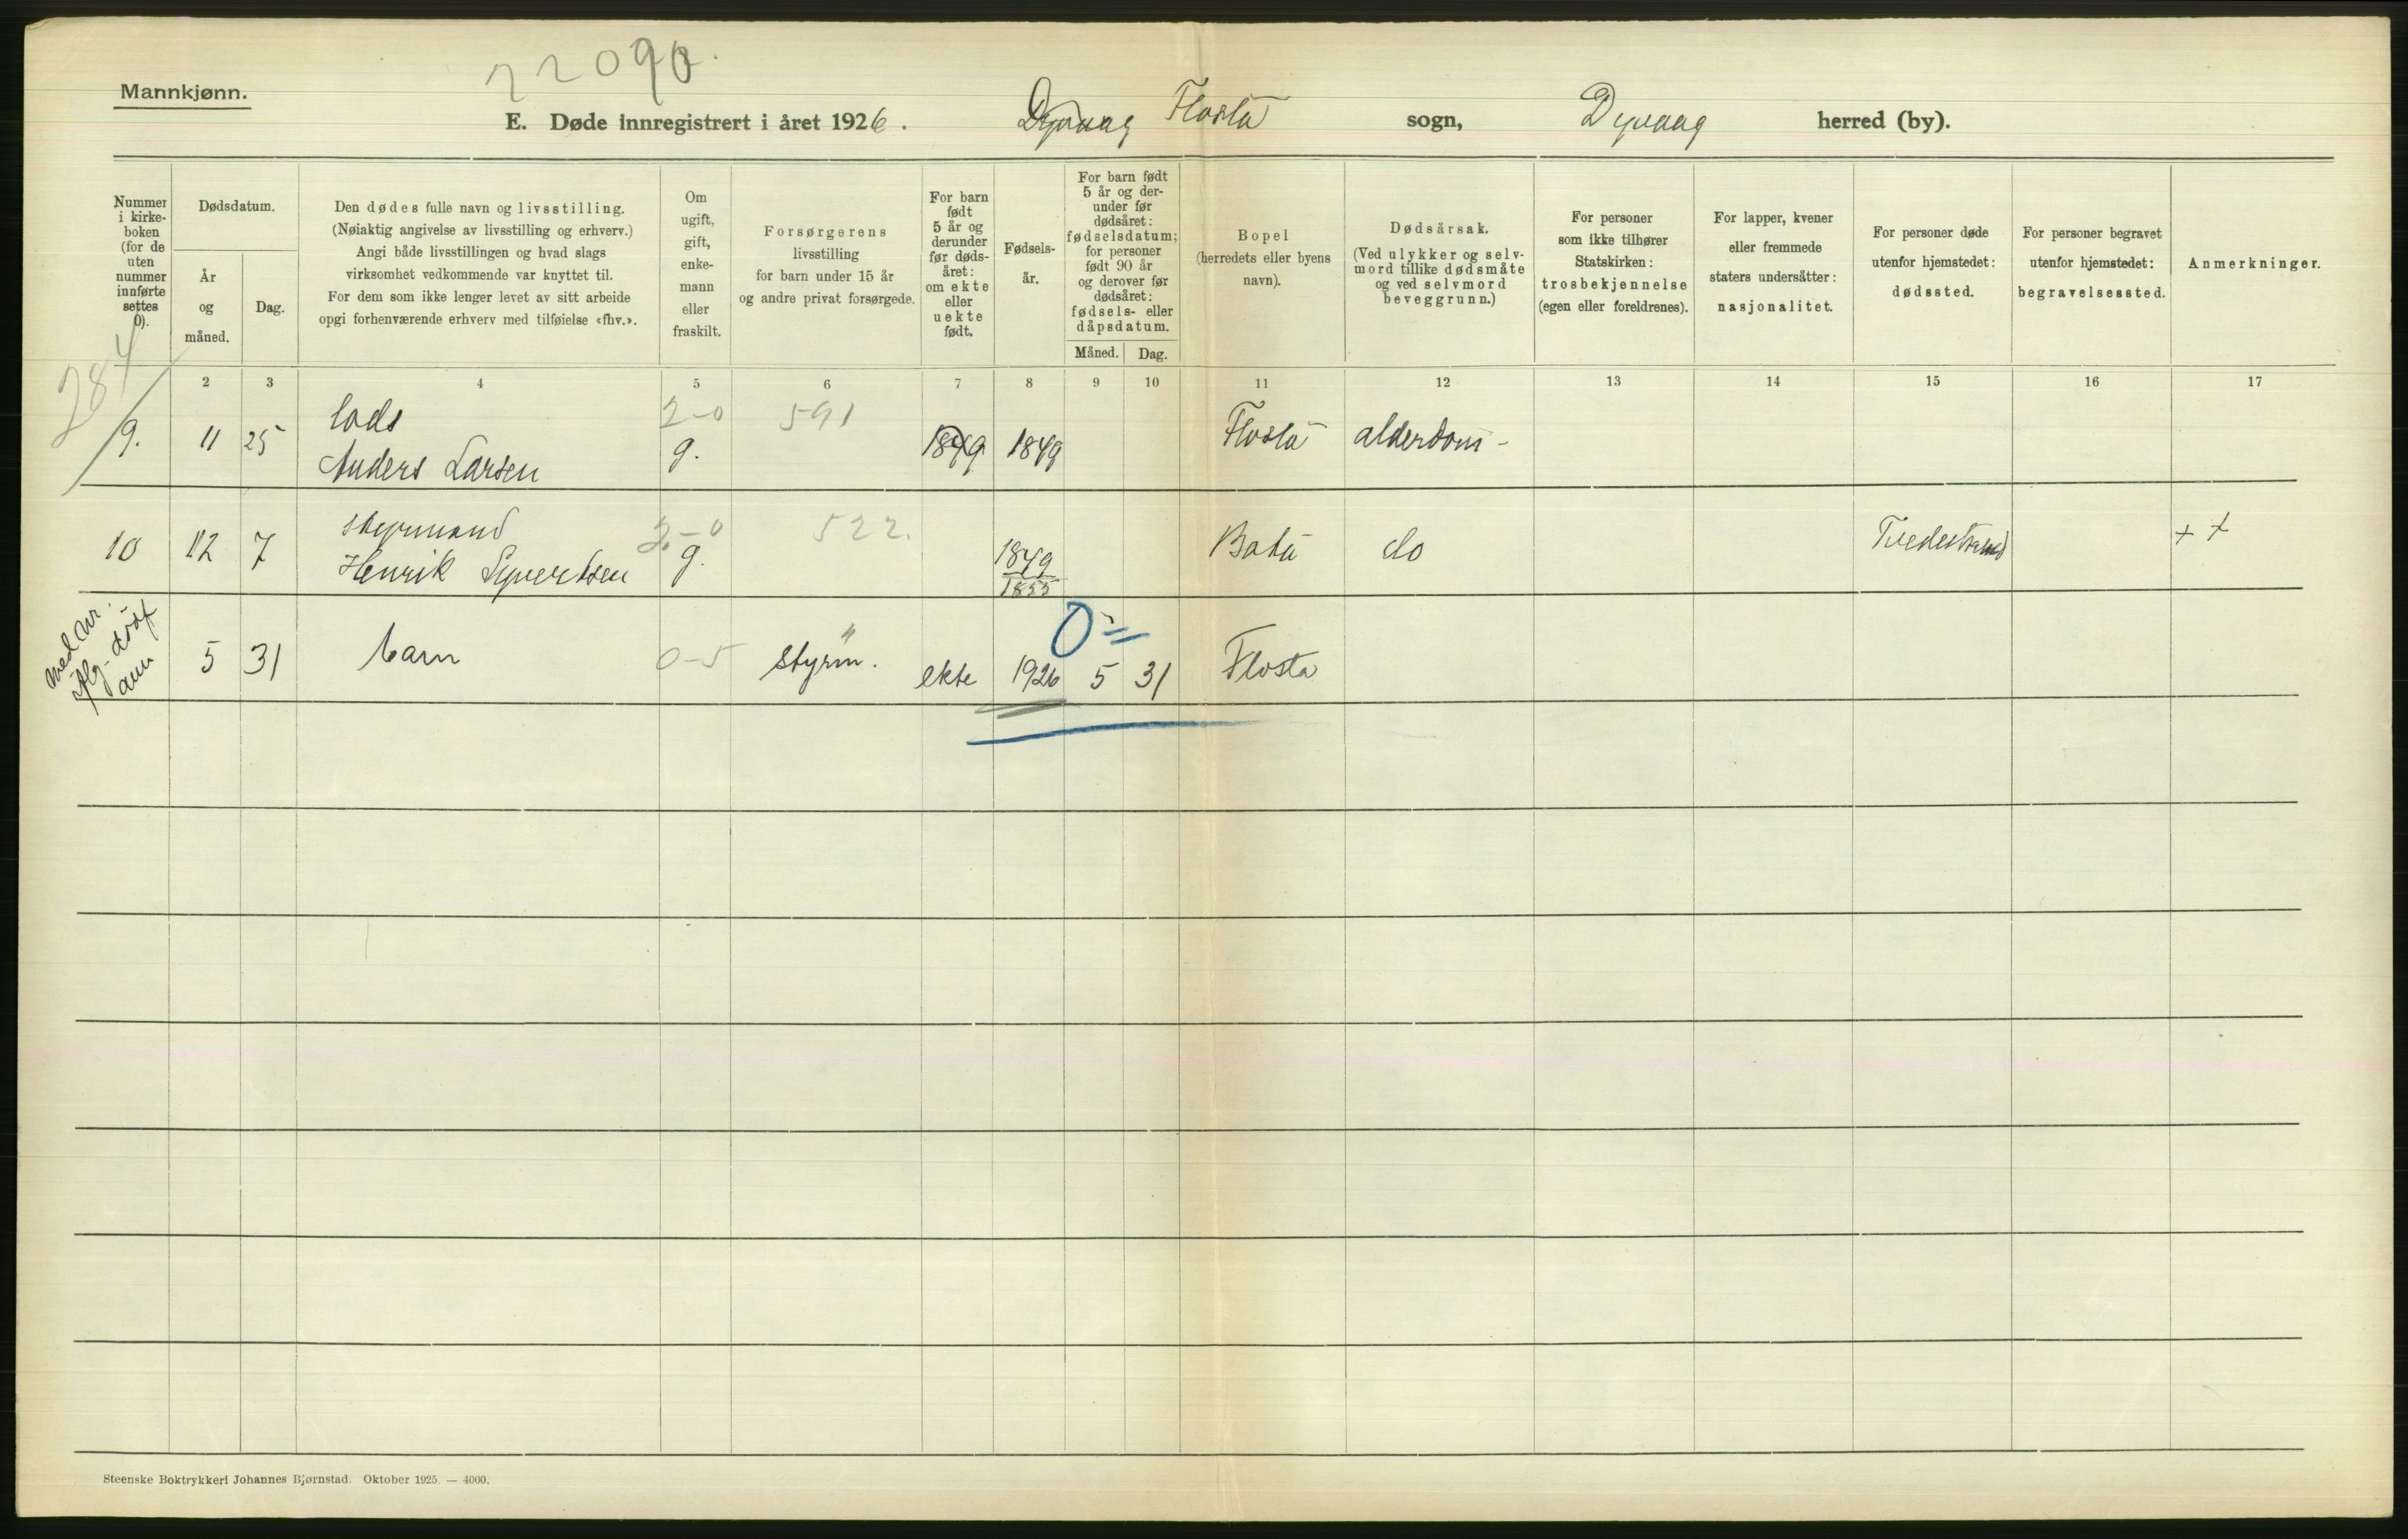 22090.
Mannkjønn.
E. Døde innregistrert i året 1926. Dyvaag Flosta sogn, Dyvaag herred (by).
Nummer i kirke-boken (for de uten nummer innførte settes 0).
Dødsdatum.
År og måned.
Dag.
Den dødes fulle navn og livsstilling.
(Nøiaktig angivelse av livsstilling og erhverv.)
Angi både livsstillingen og hvad slags
virksomhet vedkommende var knyttet til.
For dem som ikke lenger levet av sitt arbeide
opgi forhenværende erhverv med tilføielse «fhv.».
Om ugift, gift, enke-mann eller fraskilt.
Forsørgerens
livsstilling
for barn under 15 år
og andre privat forsørgede.
For barn født 5 år og derunder før døds-året: om ekte eller uekte født.
Fødsels-år.
For barn født 5 år og der-under før dødsåret: fødselsdatum; for personer født 90 år og derover før dødsåret: fødsels- eller dåpsdatum.
Måned. Dag.
Bopel
(herredets eller byens
navn).
Dødsårsak.
(Ved ulykker og selv-
mord tillike dødsmåte
og ved selvmord
beveggrunn.)
For personer
som ikke tilhører
Statskirken:
trosbekjennelse
(egen eller foreldrenes).
For lapper, kvener
eller fremmede
staters undersåtter:
nasjonalitet.
For personer døde
utenfor hjemstedet:
dødssted.
For personer begravet
utenfor hjemstedet:
begravelsessted.
Anmerkninger.
284
2 3 4 5 6 7 8 9 10 11 12 13 14 15 16 17
Lods 2-0 591
9. 11 25 Anders Larsen g. 1849 1849 Flosta alderdom-
styrmand 2-0 522.
10 12 7 Henrik Syvertsen g. 1849 Bota do Tvedestrand ++
1855
0=
med nr.
5 31 barn 0-5 styrm. ekte 1926 5 31 Flosta
Steenske Boktrykkeri Johannes Bjørnstad. Oktober 1925. — 4000.